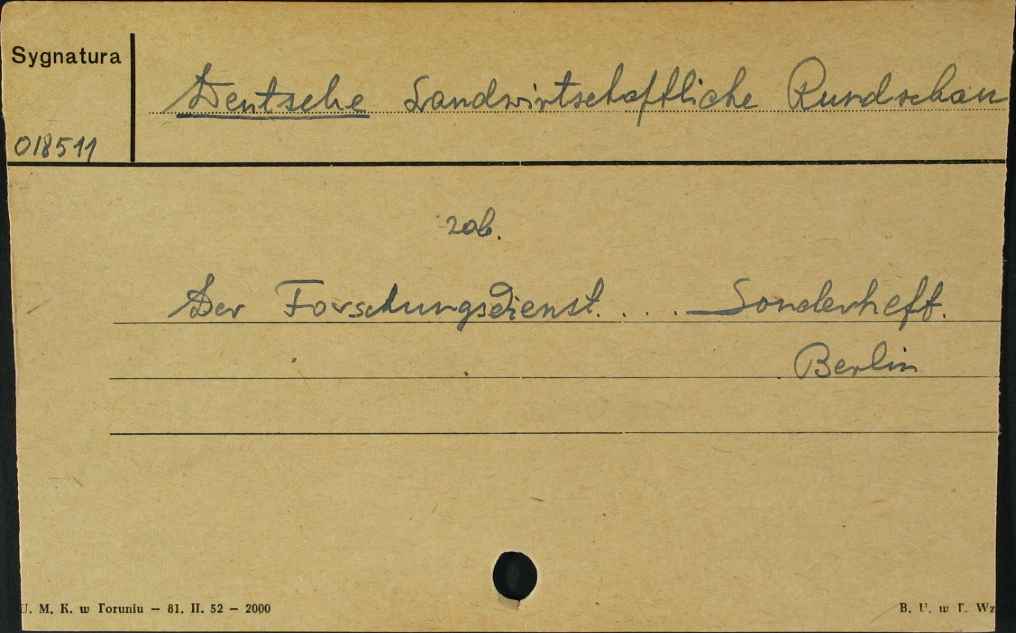 Sygnatura
Deutsche Landwirtschaftliche Rundschau
018511
zob.
Der Forschungsdienst. . . . Sonderheft.
Berlin
U. M. K. w Toruniu — 81. II. 52 — 2000
B. U. w T. Wz